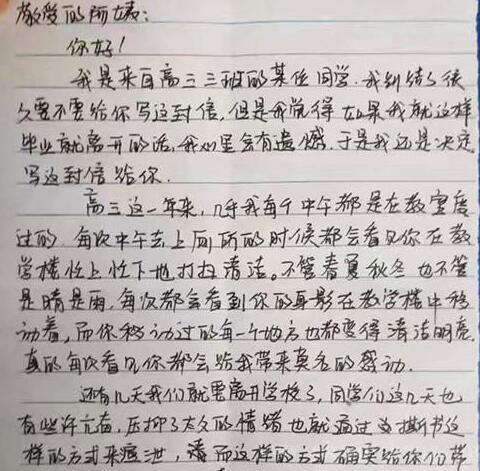 敬爱的阿姨:
你好!
我是来自高三三班的某位同学.我纠结了很
久要不要给你写这封信,但是我觉得如果我就这样
毕业就离开的话,我心里会有遗憾.于是我还是决定
写这封信给你.
高三这一年来,几乎我每个中午都是在教室度
过的.每次中午去上厕所的时候都会看见你在教
学楼忙上忙下地打扫清洁。不管春夏秋冬也不管
是晴是雨,每次都会看到你的身影在教学楼中移
动着,而你移动过的每一个地方也都变得清洁明亮.
真的每次看见你都会给我带来莫名的感动.
还有几天我们就要离开学校了,同学们这几天也
有些许亢奋,压抑了太久的情绪也就通过 撕书这
样的方式来宣泄, 而这样的方式确实给你们带